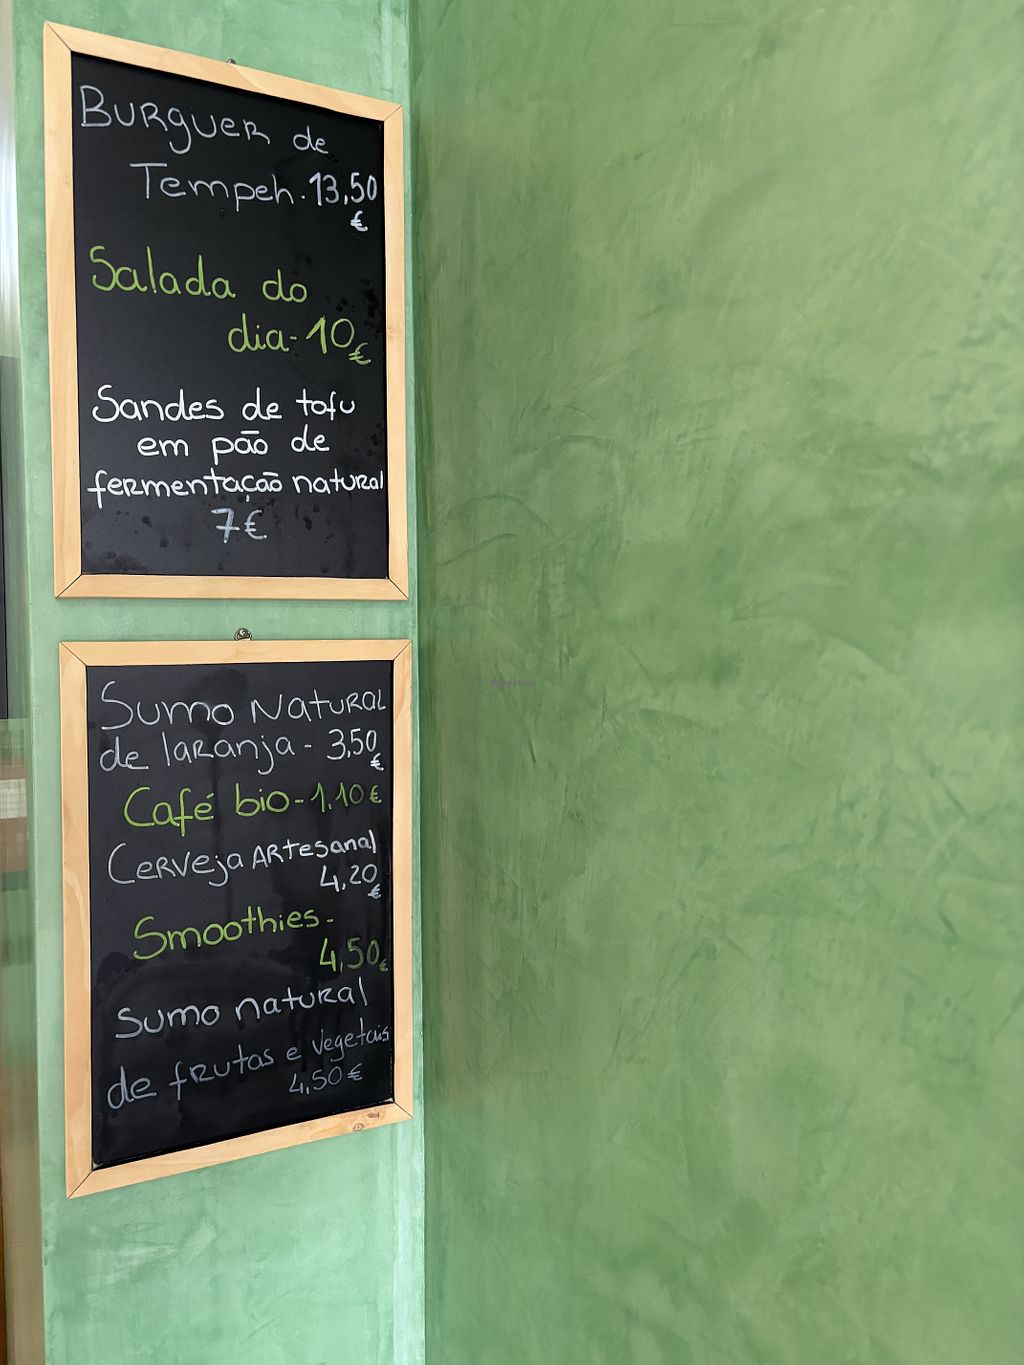 Burguer de
Tempeh. 13,50
€
Salada do
dia - 10€
Sandes de tofu
em pão de
fermentação natural
7€
Sumo Natural
de laranja - 3,50
€
Café bio - 1,10 €
Cerveja Artesanal
4,20
€
Smoothies -
4,50€
Sumo natural
de frutas e vegetais
4,50€